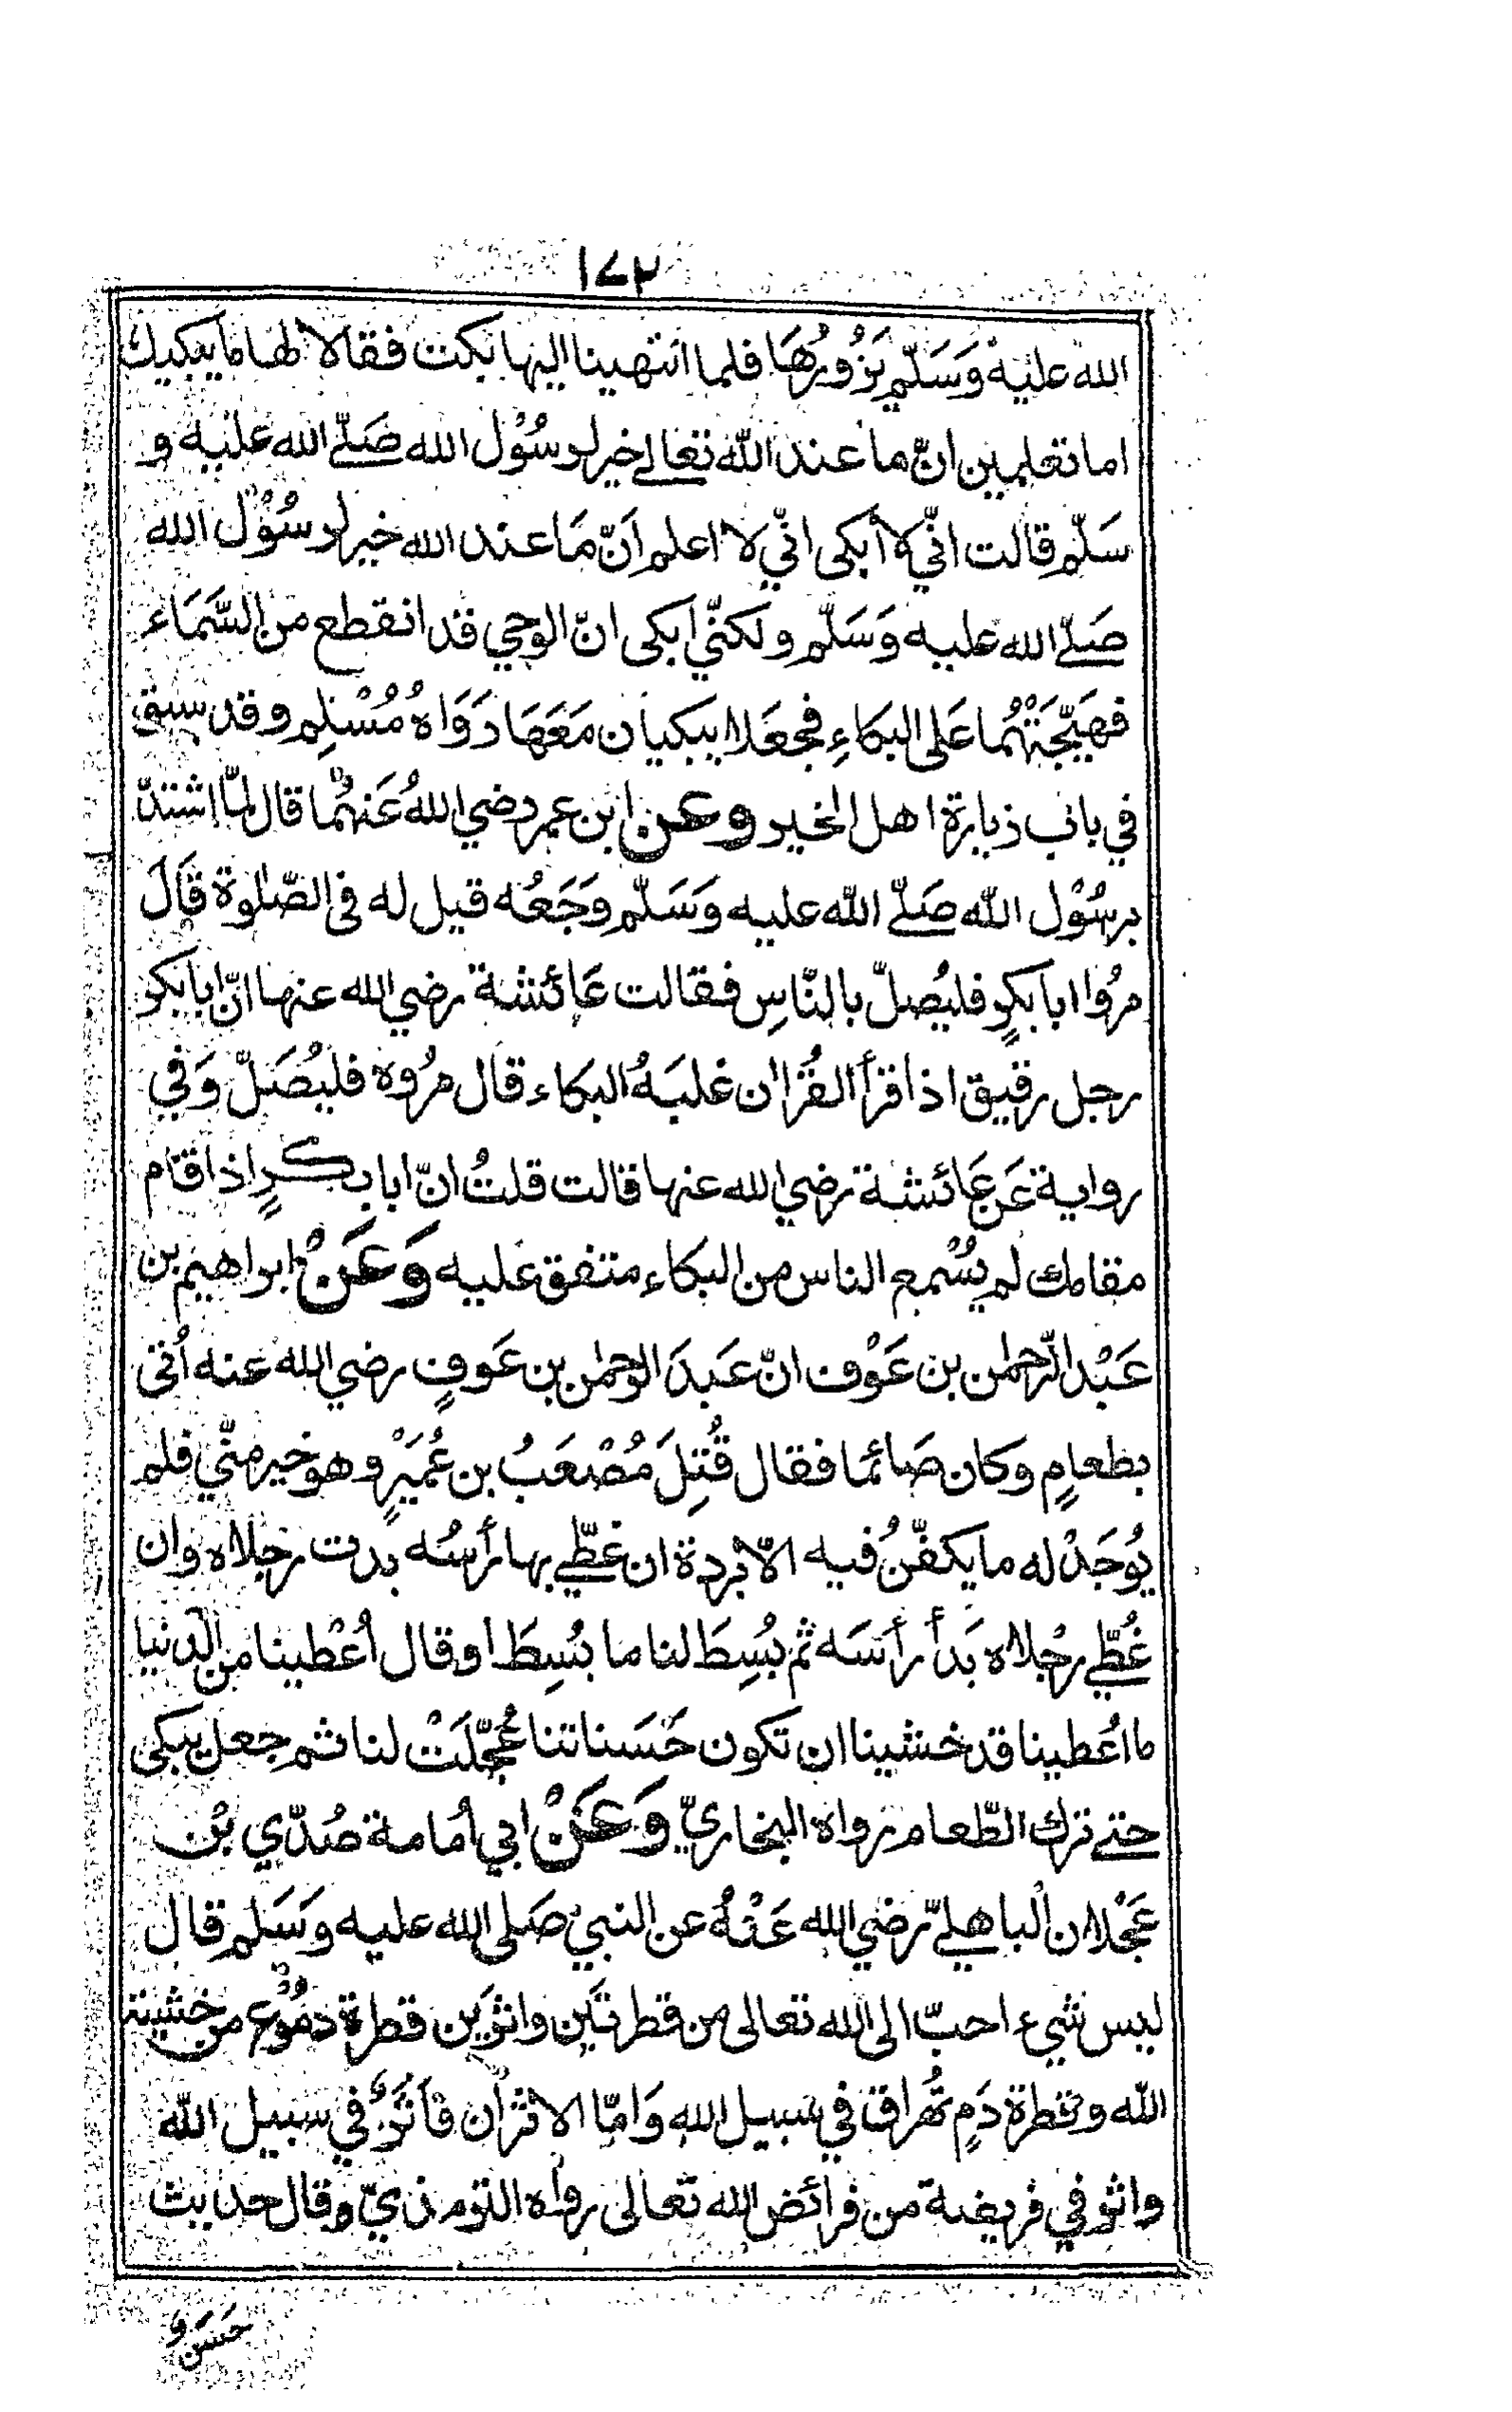 ١٧٢
الله عليه وَسَلّم يَزُورُهَا فلما انتهينا اليها بكت فقالا لها ما يبكيك
اما تعلمين انّ ما عند الله تعالى خير لرسُوْل الله صَلّى الله عليه و
سَلّم قالت انّي لا أبكى انّي لا اعلم اَنّ مَا عند الله خير لرسُوْل الله
صَلّى الله عليه وَسَلّم ولكنّي ابكى انّ الوحي قد انقطع من السَّمَاء
فهَيّجَتْهُما عَلى البكاءِ فجعَلا يبكيان مَعَهَا رَوَاهُ مُسْلِم وقد سبق
في باب زيارة اهل الخير وعن ابن عمر رضي اللهُ عَنهُما قال لمّا اشتدّ
برسُوْل الله صَلّى الله عليه وَسَلّم وَجَعُه قيل له فى الصّلوة قَالَ
مرُوا ابا بكرٍ فليُصلّ بالنّاسِ فقالت عَائشة رضي الله عنها انّ ابا بكر
رجل رقيق اذا قرأ القُرْان غلبَهُ البكاء قال مرُوه فليُصَلّ وَفي
رواية عَن عَائشة رضي الله عنها قالت قلتُ انّ ابا بكرٍ اذا قام
مقامك لم يُسْمع الناس من البكاء متفق عليه وَعَنْ ابراهيم بن
عَبْد الرّحمٰن بن عَوْف انّ عَبدَ الرّحمٰن بن عَوفٍ رضي الله عنه اُتى
بطعامٍ وكان صَائما فقال قُتِلَ مُصْعَبُ بن عُمَيْرٍ وهو خير منّي فلم
يُوجَدْ له ما يكفّنُ فيه الّا بُردة ان غطّي بها رأسُه بدت رجلاه وان
غُطّي رجْلاه بَدأ رأسَه ثم بُسِطَ لنا ما بُسِطَ او قال اُعْطينا من الدنيا
ما اُعْطينا قد خشينا ان تكون حَسَناتنا عُجّلَتْ لنا ثم جعل يبكى
حتى ترك الطّعام رواه البخاريّ وَعَنْ ابي اُمامة صُدّي بْن
عَجْلان الباهليّ رضي الله عَنْهُ عن النبي صَلى الله عليه وَسَلم قال
ليس شيء احبّ الى الله تعالى من قطرتَين واثرَين قطرة دمُوْع من خشية
الله وقطرة دَمٍ تُهراق في سبيل الله وَامّا الاثران فَأثرٌ في سبيل الله
واثر في فريضة من فرائض الله تعالى رواه الترمذيّ وقال حديث
حَسَن و